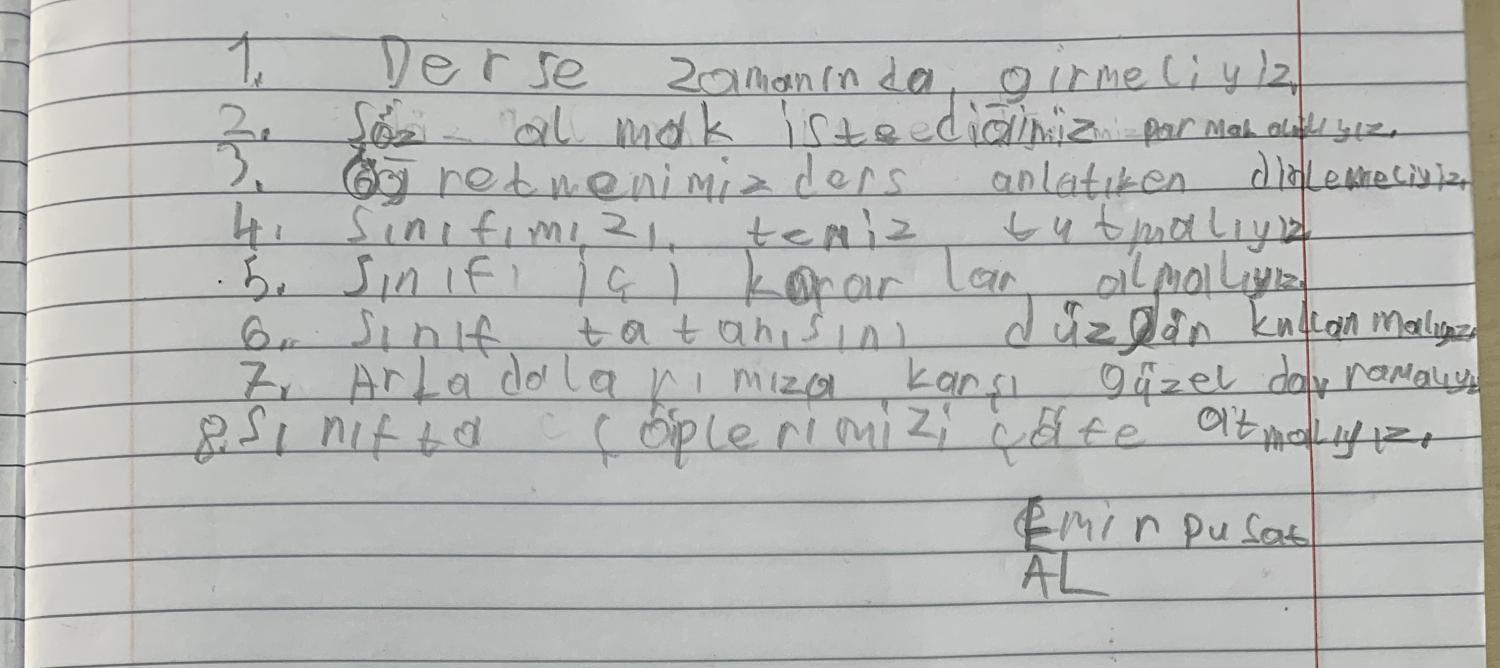 1. Derse zamanında girmeliyiz.
2. Söz almak isteediğimiz parmak
3. Öğretmenimiz ders anlatıken dinlemeliyiz.
4. Sınıfımızı temiz tutmalıyız
5. Sınıfı içi karar lar almalıyız
6. Sınıf tatahısını düzgün kullanmalıyız.
7. Arkadolarımıza karşı güzel davramalıyız
8. Sınıfta çöplerimizi çöte atmalıyız.
Emir pusat
AL